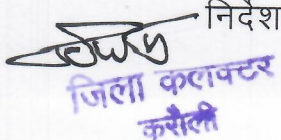 निर्देश
जिला कलक्टर
करौली